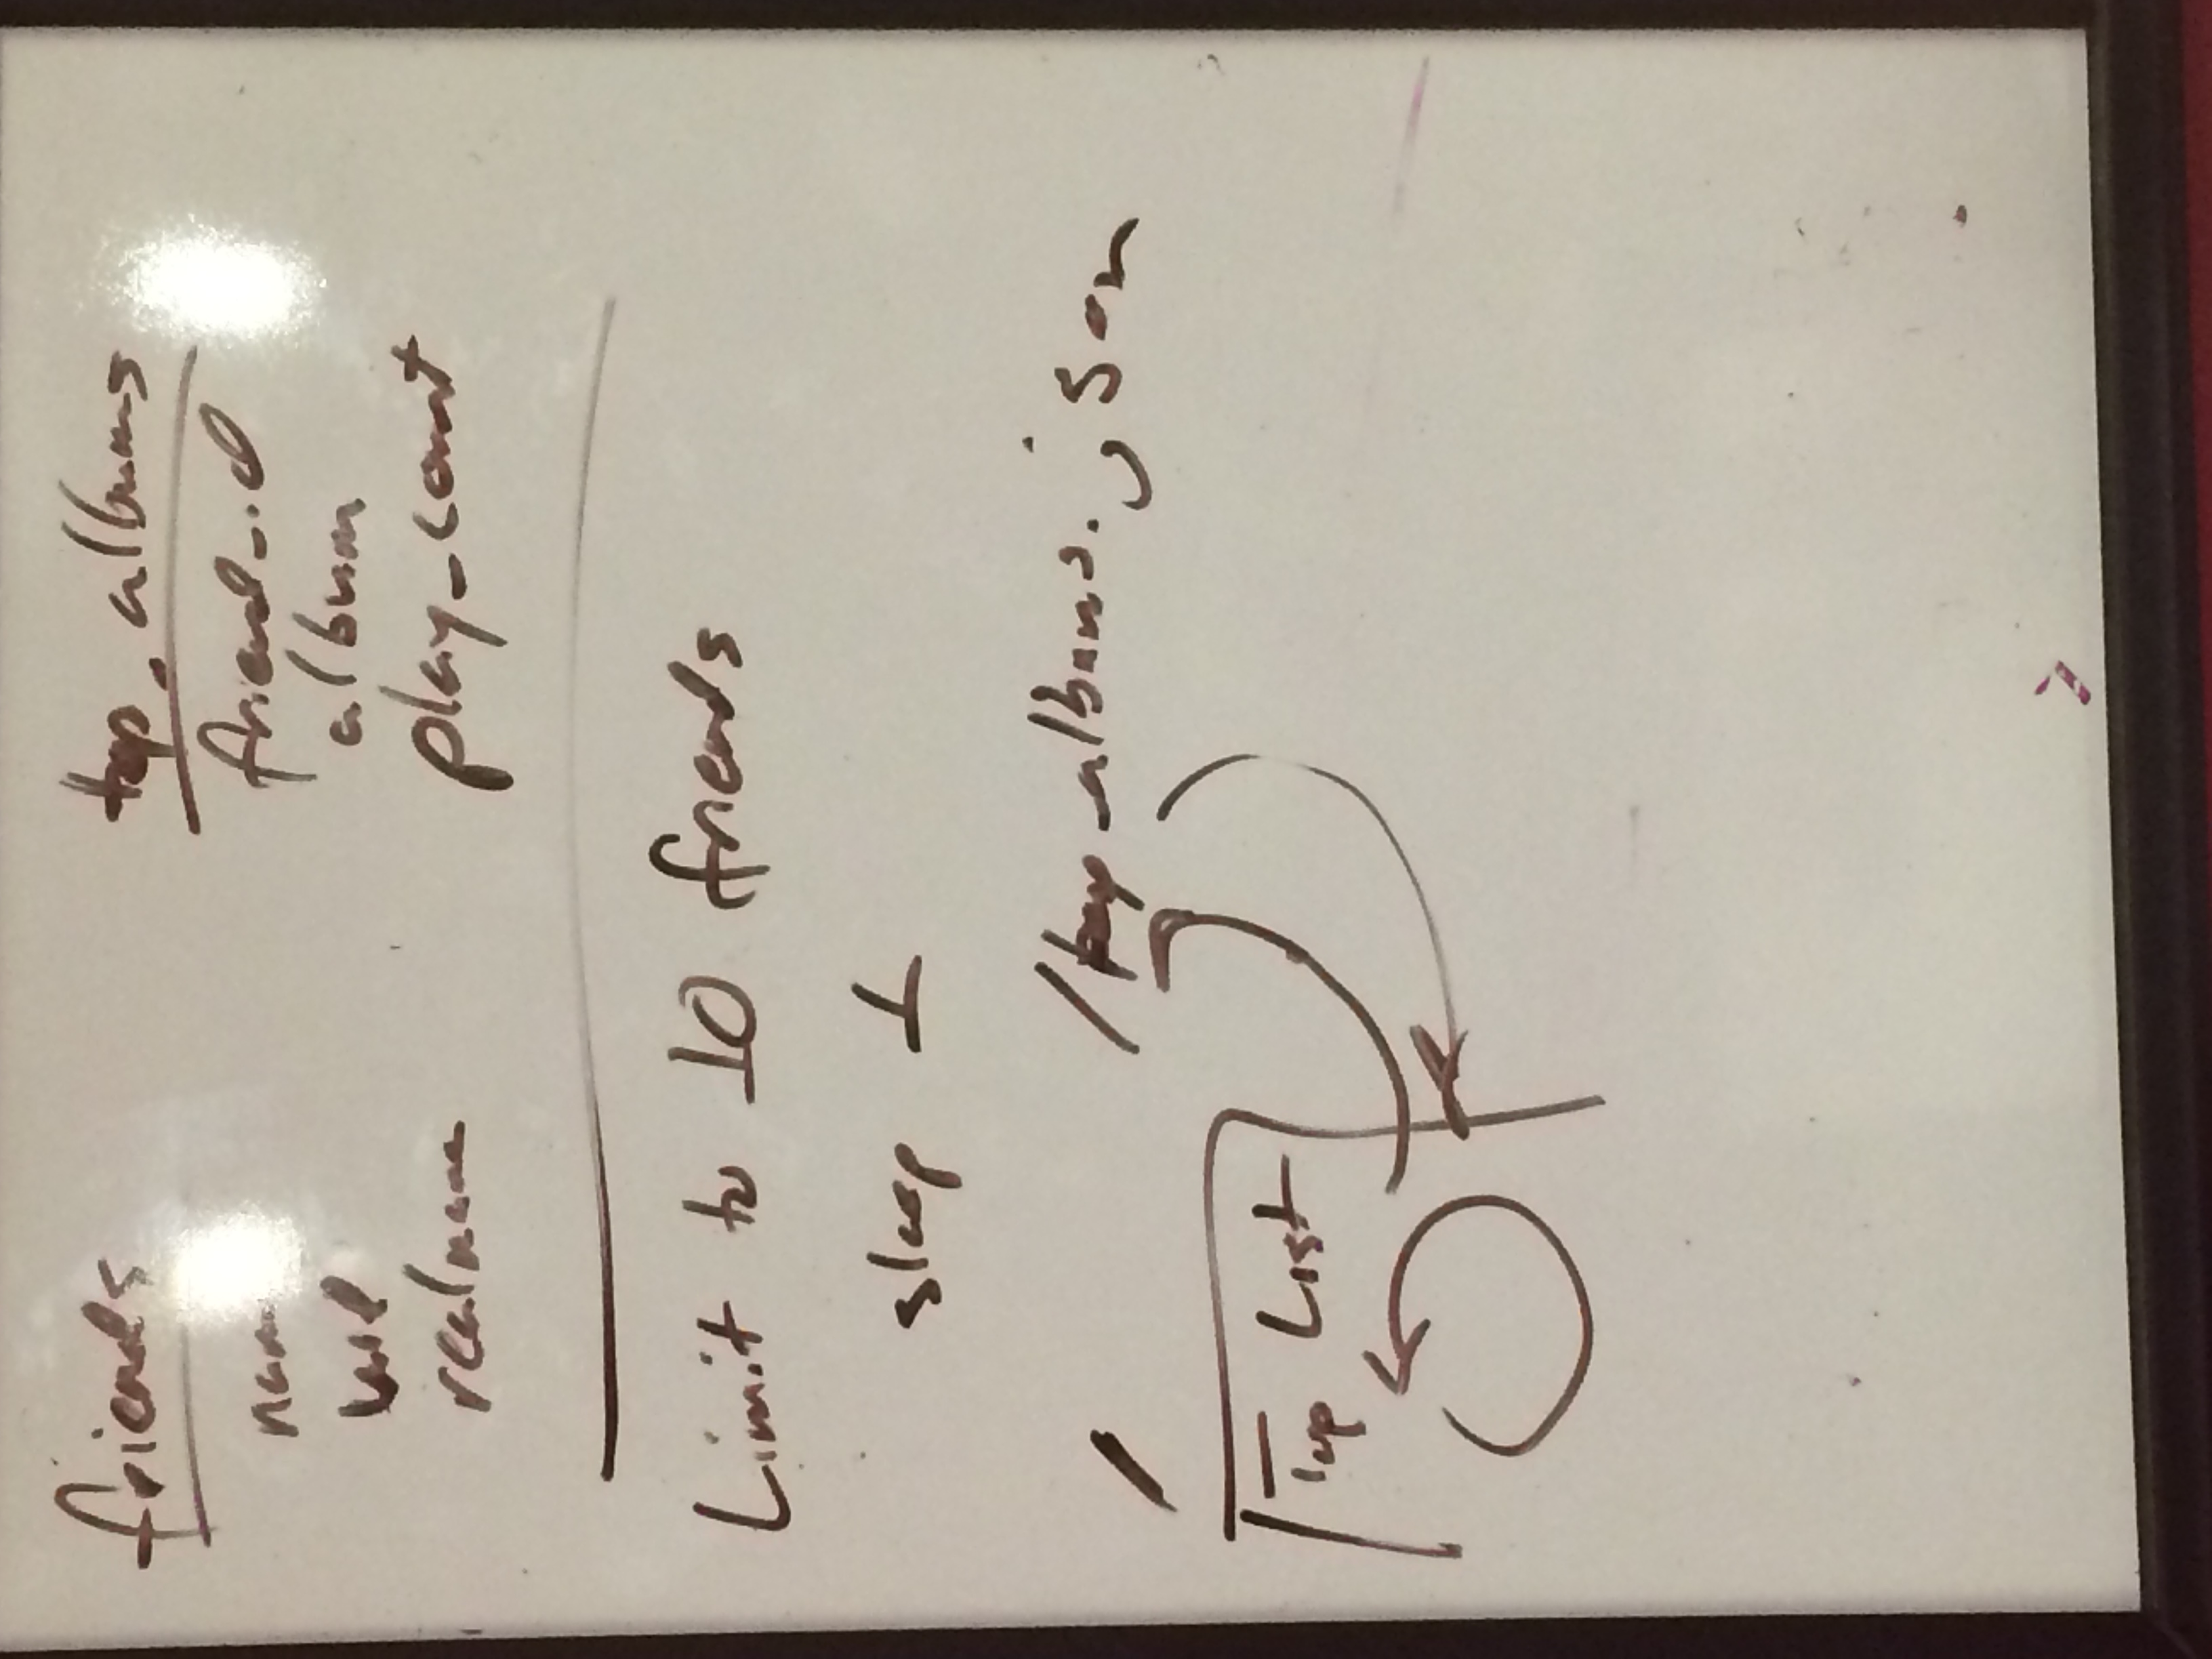 friends
name
url
realname
top_albums
friend_id
album
play_count
Limit to 10 friends
sleep 1
/top_albums.json
/
Top List